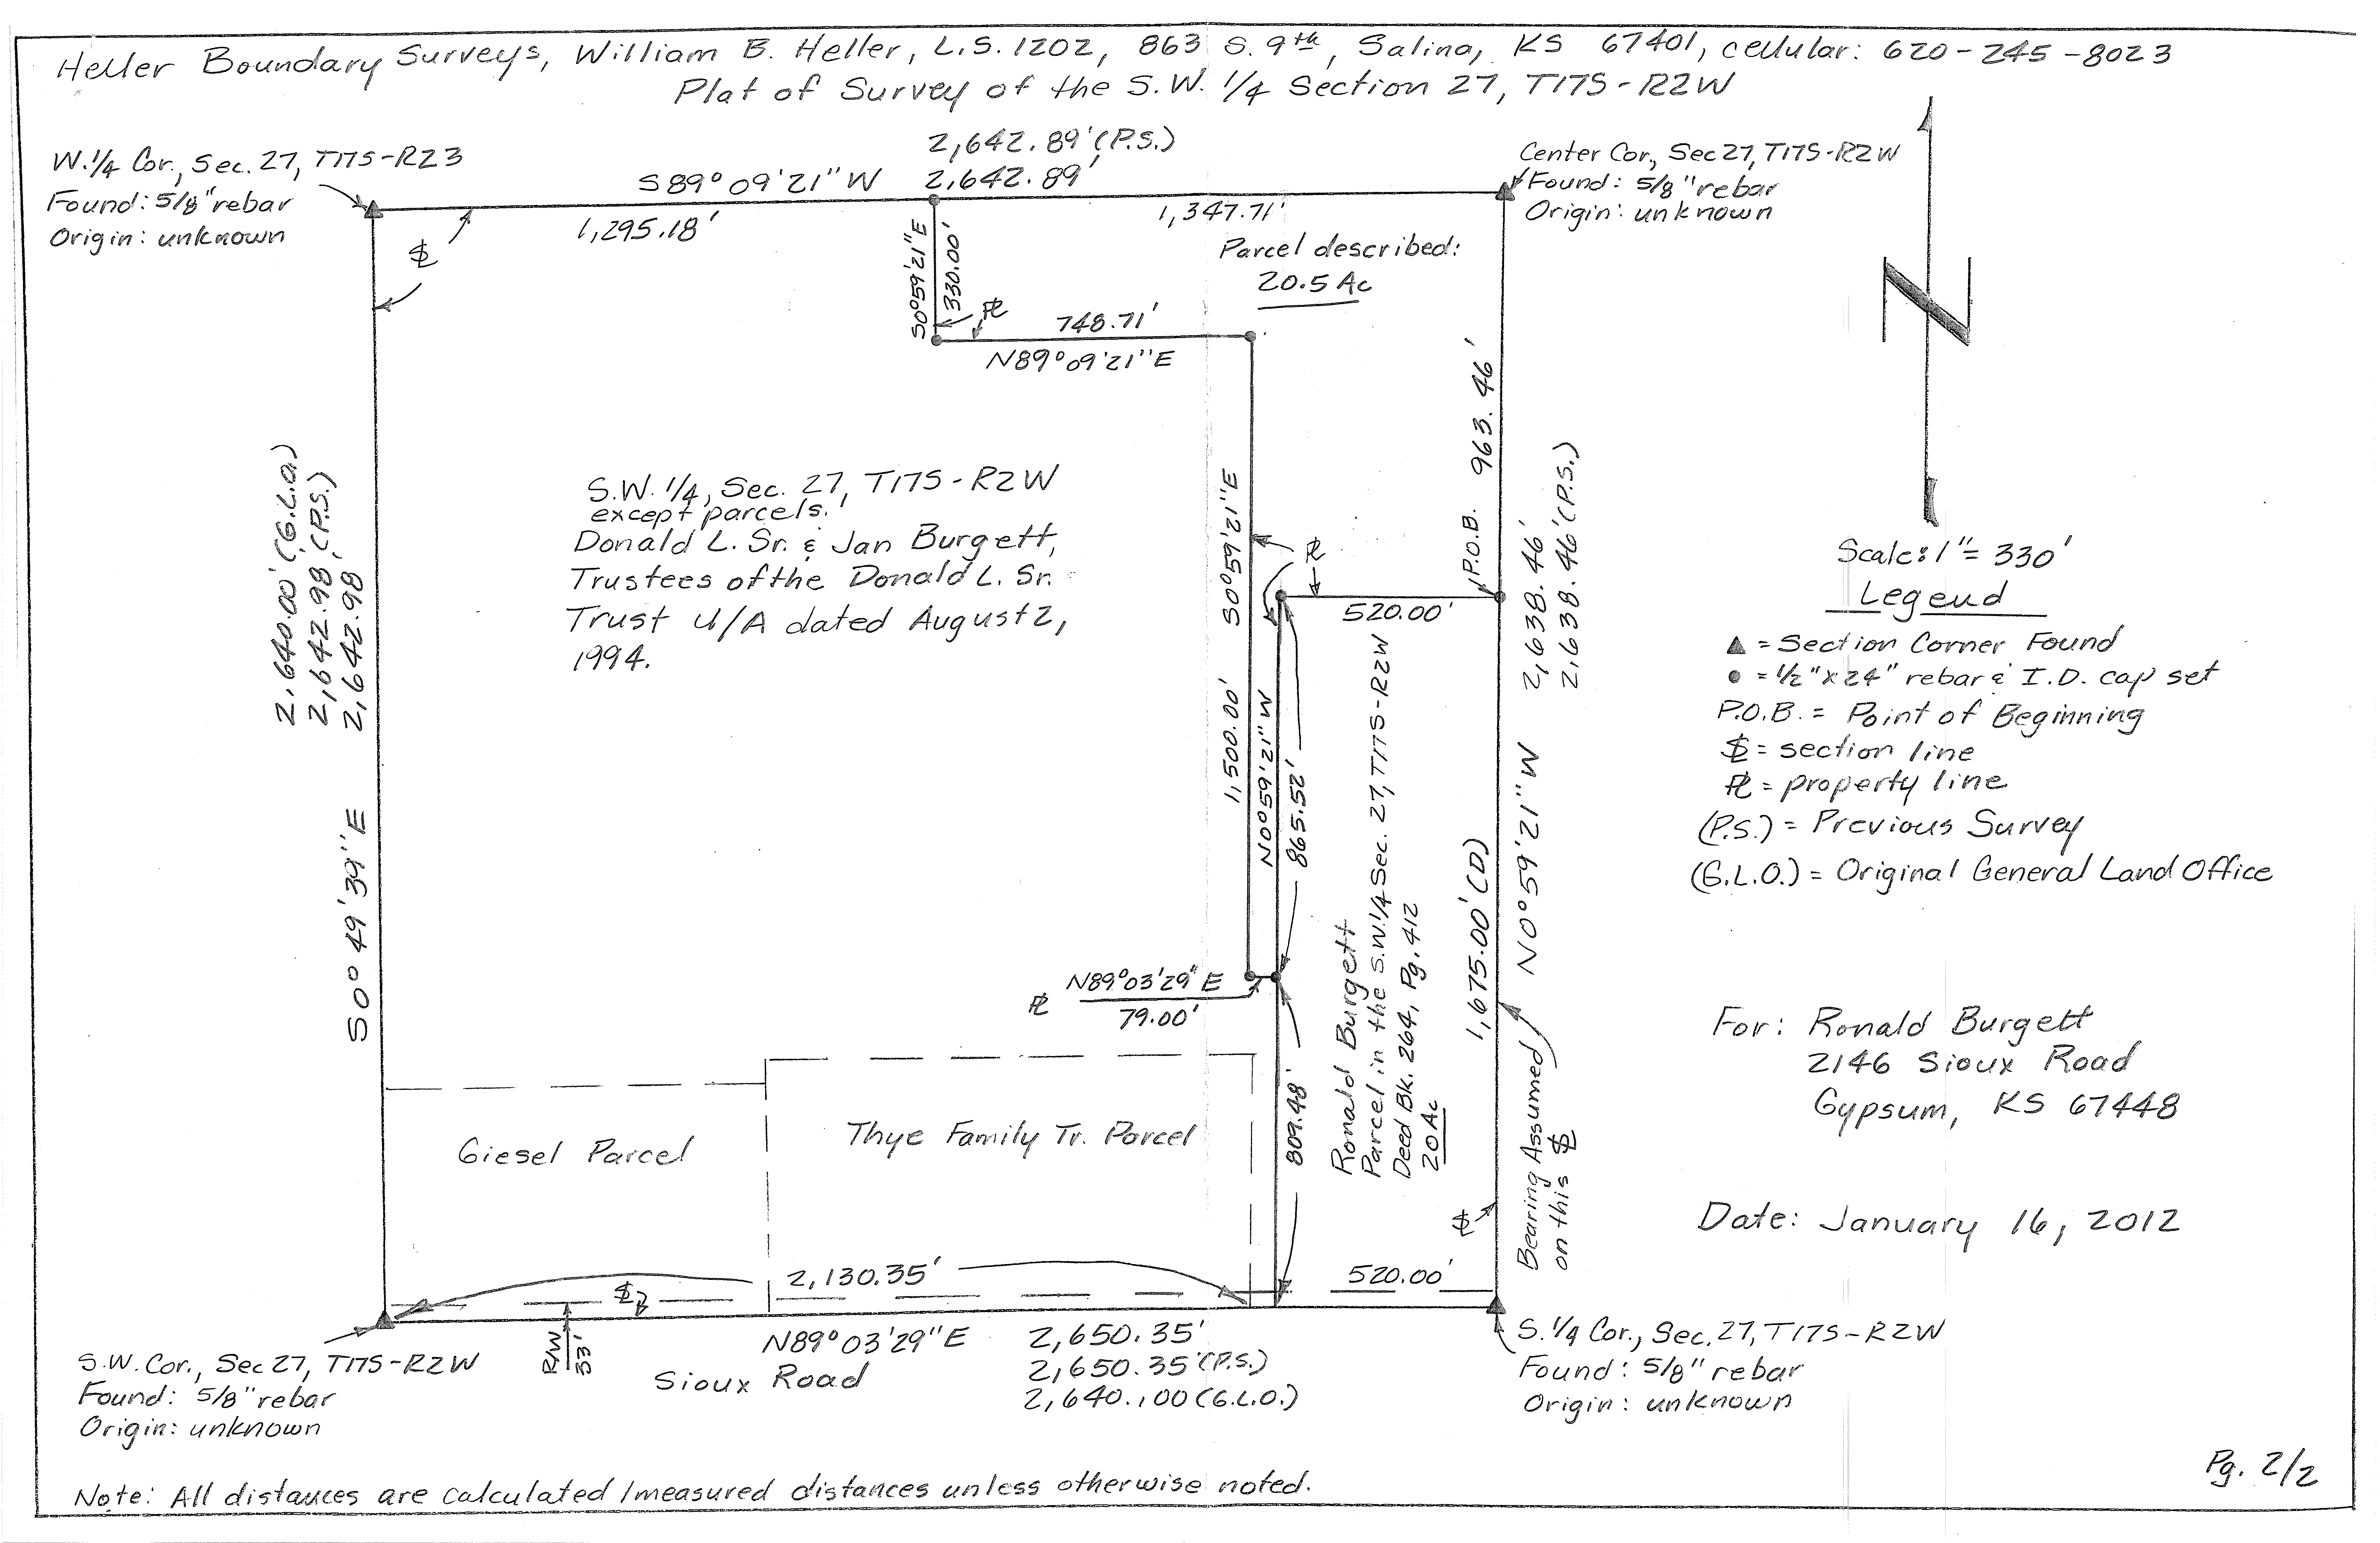 Heller Boundary Surveys, William B. Heller, L.S. 1202, 863 S. 9th, Salina, KS 67401, cellular: 620-245-8023
Plat of Survey of the S.W. 1/4 Section 27, T17S-R2W
W. 1/4 Cor., Sec. 27, T17S-R23
Found: 5/8" rebar
Origin: unknown
2,642.89' (P.S.)
S89°09'21"W 2,642.89'
1,295.18'
1,347.71'
Center Cor., Sec 27, T17S-R2W
Found: 5/8" rebar
Origin: unknown
Parcel described:
20.5 Ac
S0°59'21"E
330.00'
748.71'
N89°09'21"E
N
Scale: 1" = 330'
Legend
▲ = Section Corner Found
● = 1/2" x 24" rebar & I.D. cap set
P.O.B. = Point of Beginning
SL = section line
PL = property line
(P.S.) = Previous Survey
(G.L.O.) = Original General Land Office
2,640.00' (G.L.O.)
2,642.98' (P.S.)
S0°49'39"E 2,642.98'
S.W. 1/4, Sec. 27, T17S-R2W
except parcels.
Donald L. Sr. & Jan Burgett,
Trustees of the Donald L. Sr.
Trust U/A dated August 2,
1994.
1,500.00' S0°59'21"E
PL
N0°59'21"W
865.52'
520.00'
P.O.B. 963.46'
N0°59'21"W 2,638.46'
2,638.46' (P.S.)
1,675.00' (D)
Ronald Burgett
Parcel in the S.W. 1/4 Sec. 27, T17S-R2W
Deed Bk. 264, Pg. 412
20 Ac
Bearing Assumed
on this SL
PL N89°03'29"E
79.00'
809.48'
Giesel Parcel
Thye Family Tr. Parcel
2,130.35'
520.00'
SL
R/W
33'
N89°03'29"E 2,650.35'
Sioux Road 2,650.35' (P.S.)
2,640.,00 (G.L.O.)
S.W. Cor., Sec 27, T17S-R2W
Found: 5/8" rebar
Origin: unknown
S. 1/4 Cor., Sec. 27, T17S-R2W
Found: 5/8" rebar
Origin: unknown
For: Ronald Burgett
2146 Sioux Road
Gypsum, KS 67448
Date: January 16, 2012
Note: All distances are calculated / measured distances unless otherwise noted.
Pg. 2/2